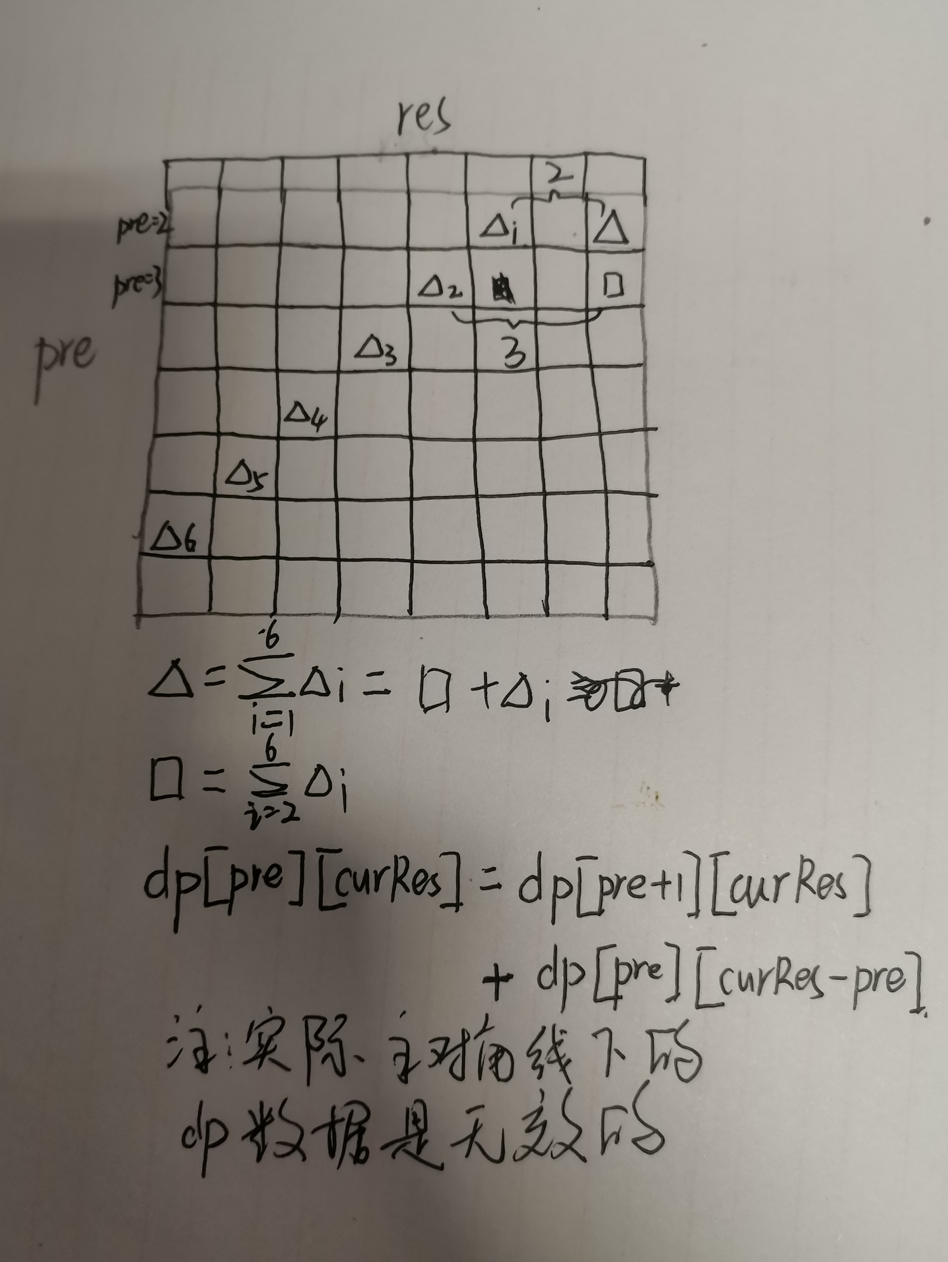 res
2
pre=2 Δi Δ
pre=3 Δ2 □
pre Δ3 3
Δ4
Δ5
Δ6
Δ = ∑_{i=1}^{6} Δi = □ + Δi
□ = ∑_{i=2}^{6} Δi
dp[pre][curRes] = dp[pre+1][curRes]
+ dp[pre][curRes-pre]
注:实际、主对角线下的
dp数据是无效的